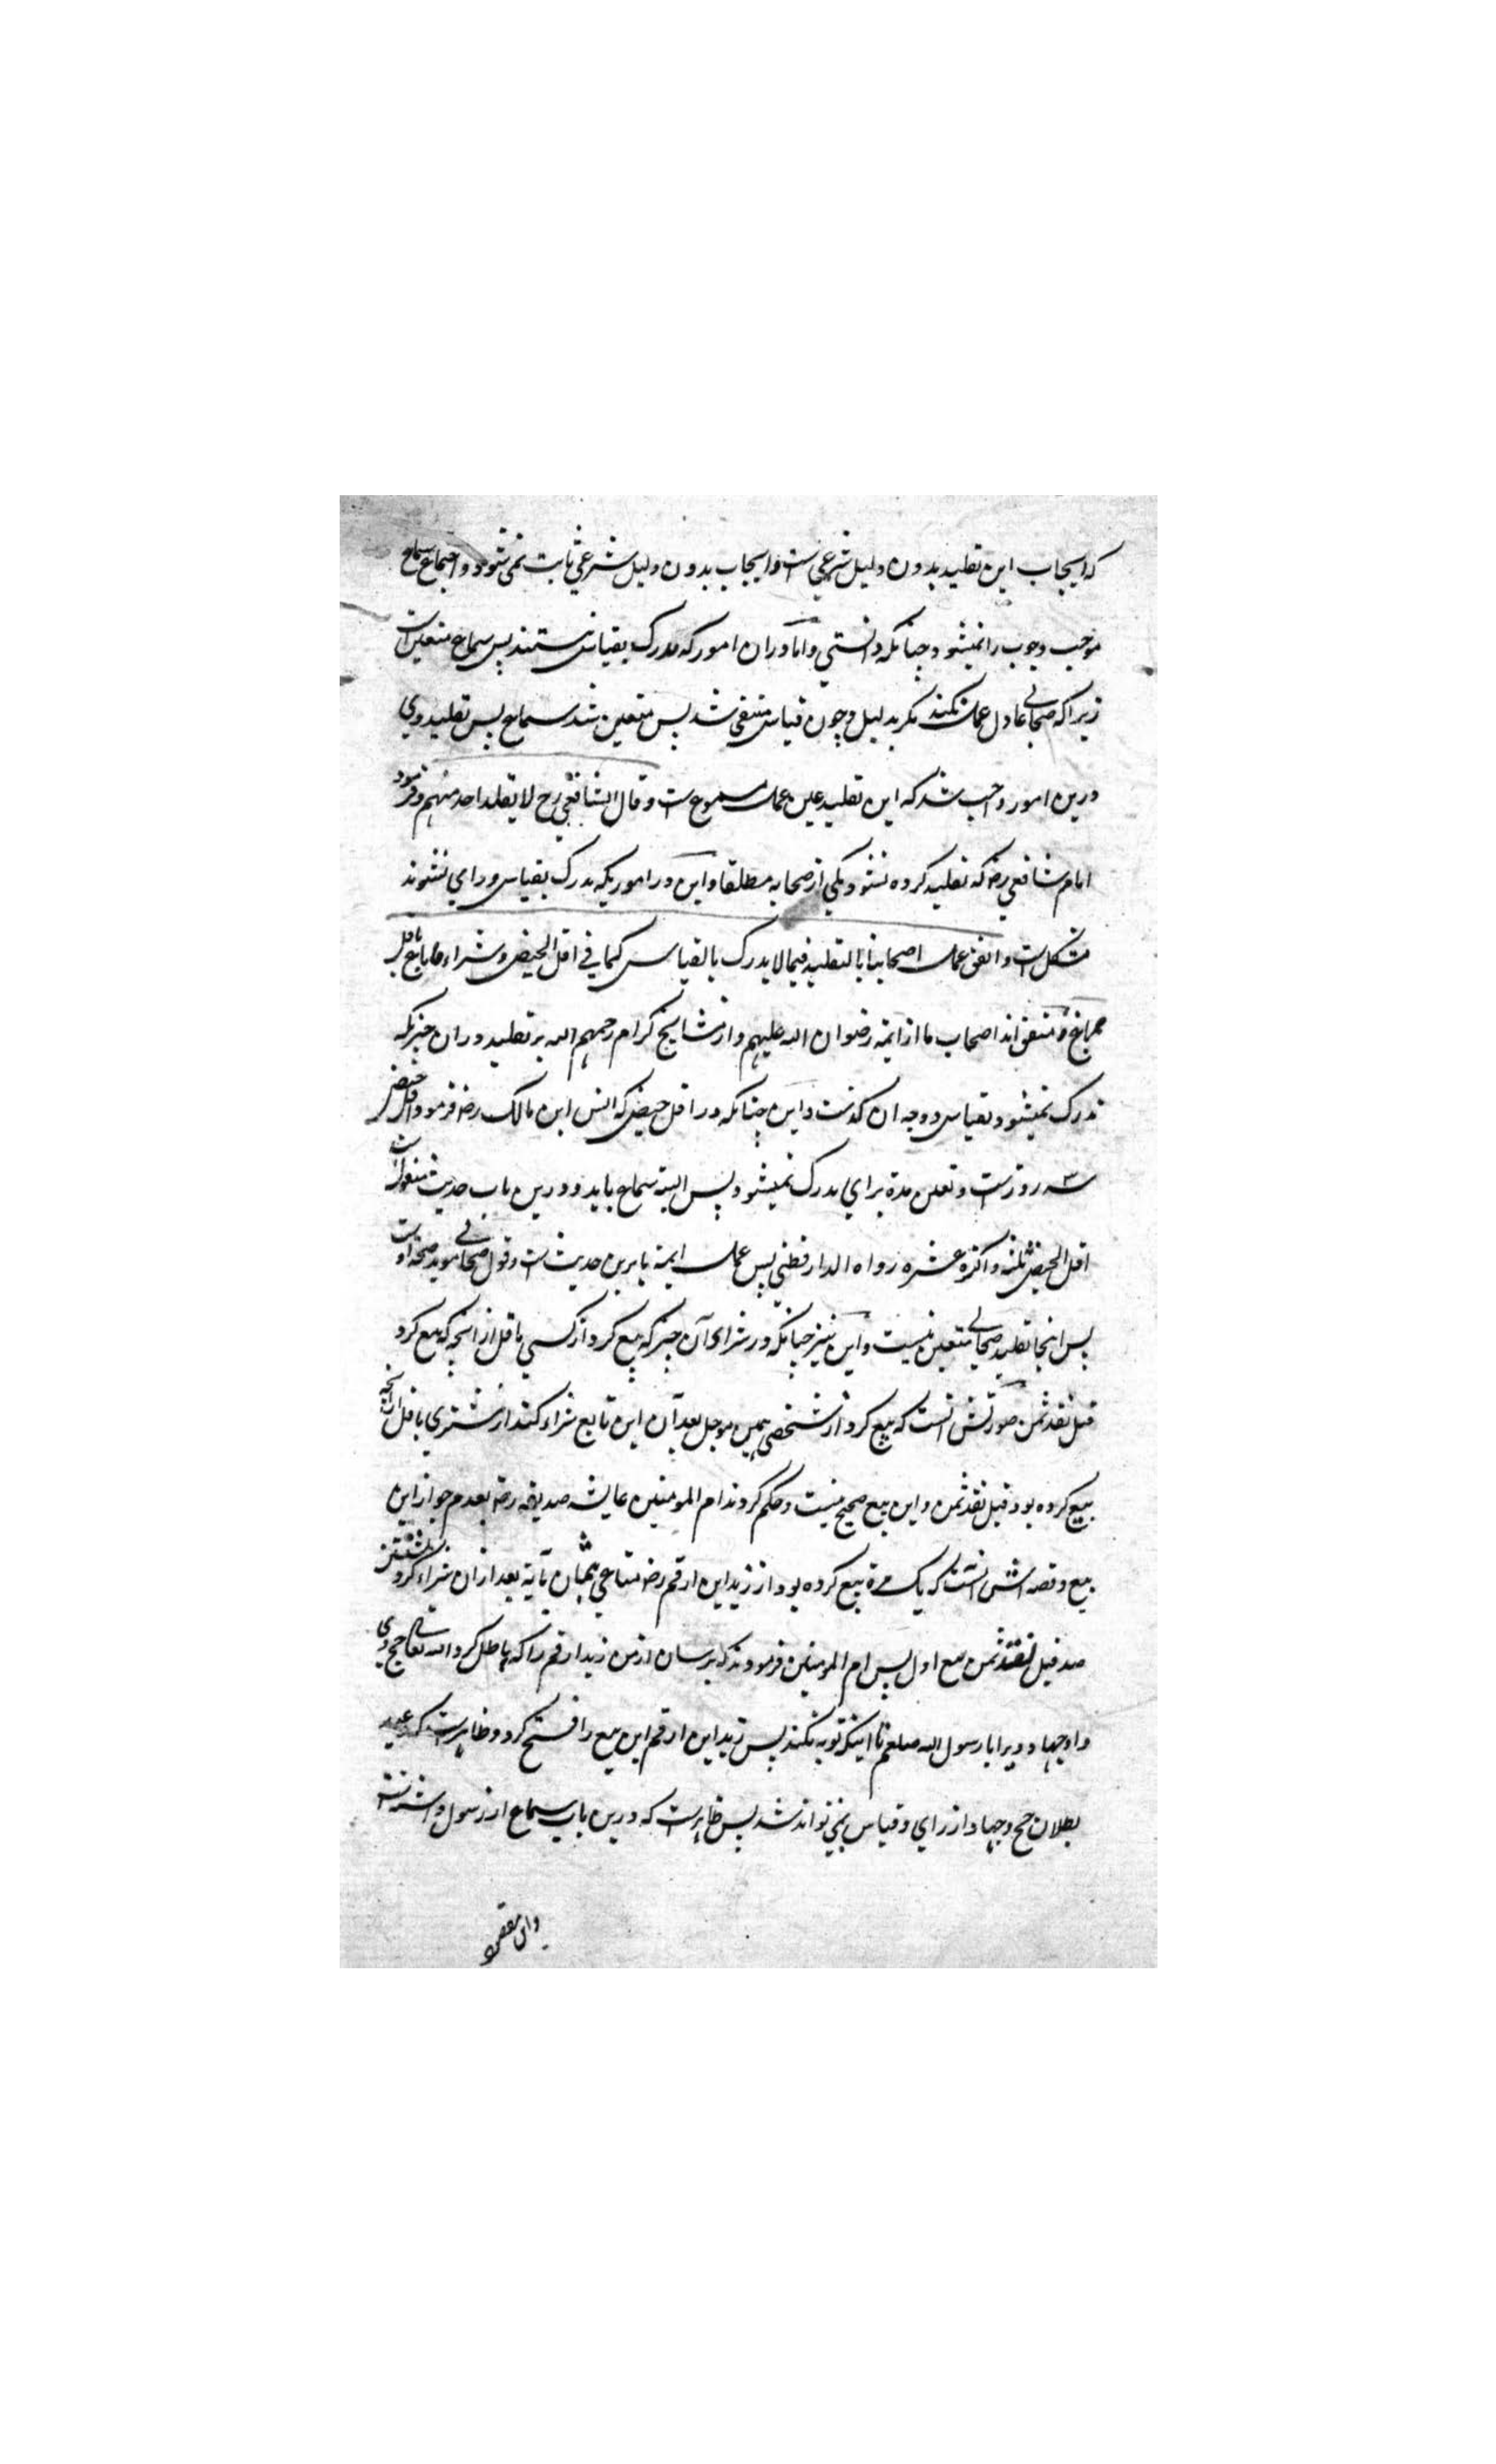 که ایجاب این تقلید بدون دلیل شرعی ست و ایجاب بدون دلیل شرعی ثابت نمی شود و احتمال سماع
موجب وجوب را نمیشود چنانکه دانستی و اما دران امور که مدرک بقیاس نیستند پس سماع متعین است
زیرا که صحابی عادل عمل نکند مگر بدلیل و چون قیاس منتفی شد پس متعین شد سماع پس تقلید وی
درین امور واجب شد که این تقلید عین عمل بمسموع ست و قال الشافعی رح لا یقلد احد منهم و فرمود
امام شافعی رض که تقلید کرده نشود یکی از صحابه مطلقا و این در اموریکه مدرک بقیاس و رای نشوند
مشکل است و اتفق عمل اصحابنا بالتقلید فیما لا یدرک بالقیاس کما فی اقل الحیض و شراء ما باع باقل
مما باع و متفق اند اصحاب ما از ایمه رضوان الله علیهم و از مشایخ کرام رحمهم الله بر تقلید دران چیزیکه
مدرک نمیشود بقیاس و وجه ان گذشت و این چنانکه در اقل حیض که انس ابن مالک رض فرمود اقل حیض
سه روز ست و تعین مدة برای مدرک نمیشود پس البته سماع باید و درین باب حدیث منقول است
اقل الحیض ثلثه و اکثره عشره رواه الدارقطنی پس عمل ایمه ما برین حدیث ست و قول صحابی موید صحة اوست
پس اینجا تقلید صحابی متعین نیست و این نیز چنانکه در شرای آن چیز که بیع کرد از کسی باقل از انچه که بیع کرد
قبل نقد ثمن صورتش انست که بیع کرد از شخصی بثمن موجل بعد آن این بایع شراء کند از مشتری باقل از انچه
بیع کرده بود قبل نقد ثمن و این بیع صحیح نیست و حکم کردند ام المومنین عایشه صدیقه رض بعدم جواز این
بیع و قصه اش انست که یک مرة بیع کرده بود از زید ابن ارقم رض متاعی بثمان مآیة بعد ازان شراء کرد بشش
صد قبل نقد ثمن بیع اول پس ام المومنین فرمودند که برسان از من زید ارقم را که باطل کرد الله تعالی حج وی
و او جهاد ویرا با رسول الله صلعم تا اینکه توبه بکند پس زید ابن ارقم این بیع را فسخ کرد و ظاهر ست که
بطلان حج و جهاد از رای و قیاس نمی تواند شد پس ظاهر ست که درین باب سماع از رسول